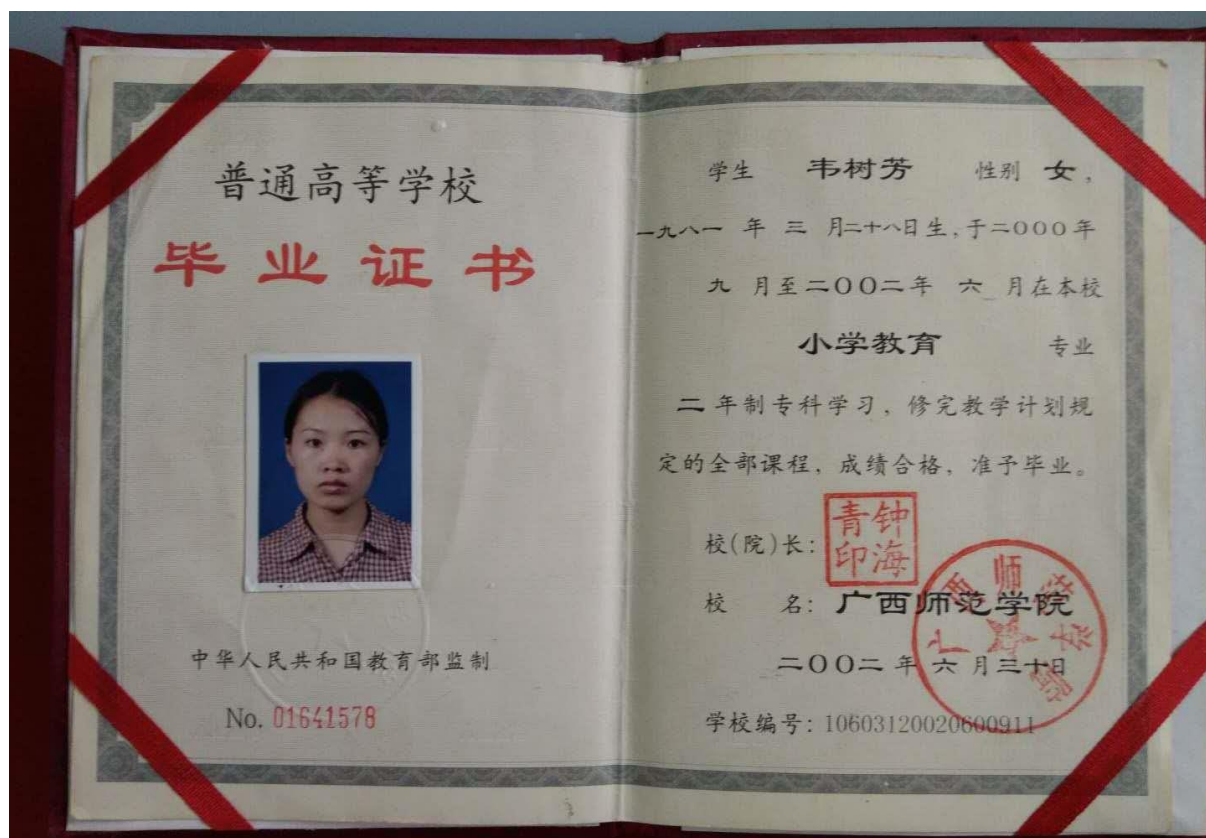 普通高等学校
毕业证书
中华人民共和国教育部监制
No. 01641578
学生 韦树芳 性别 女，
一九八一 年 三 月二十八日生，于二〇〇〇年
九 月至二〇〇二年 六 月在本校
小学教育 专业
二 年制专科学习，修完教学计划规
定的全部课程，成绩合格，准予毕业。
校(院)长：
钟海青印
校 名：广西师范学院
广西师范学院
二〇〇二 年 六 月三十日
学校编号：10603120020600911